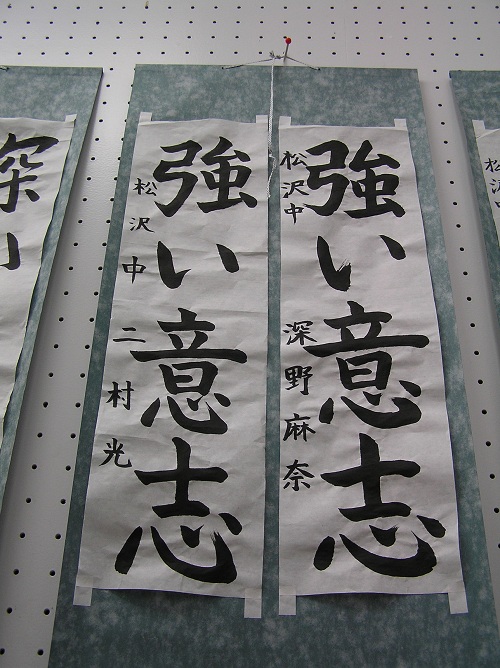 強い意志
松沢中 深野麻奈
強い意志
松沢中 二村光
深い
松沢中